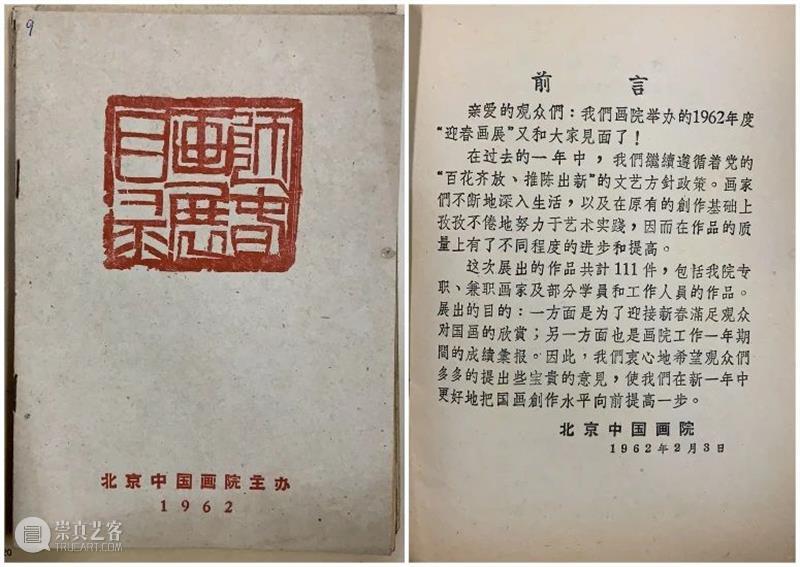 9
春
画展
目录
北京中国画院主办
1962
20
前言
亲爱的观众們：我們画院举办的1962年度
“迎春画展”又和大家見面了！
在过去的一年中，我們繼續遵循着党的
“百花齐放、推陈出新”的文艺方針政策。画家
們不断地深入生活，以及在原有的創作基础上
孜孜不倦地努力于艺术实践，因而在作品的质
量上有了不同程度的进步和提高。
这次展出的作品共計111件，包括我院专
职、兼职画家及部分学員和工作人員的作品。
展出的目的：一方面是为了迎接新春滿足观众
对国画的欣賞；另一方面也是画院工作一年期
間的成績彙报。因此，我們衷心地希望观众們
多多的提出些宝貴的意見，使我們在新一年中
更好地把国画創作水平向前提高一步。
北京中国画院
1962年2月3日
崇真艺客
TRUEART.COM